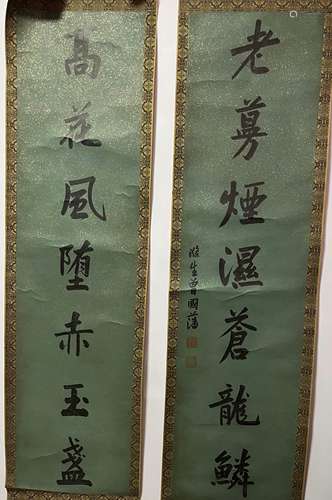 老蔓煙濕蒼龍鱗
滌生曾國藩
髙花風堕赤玉盞